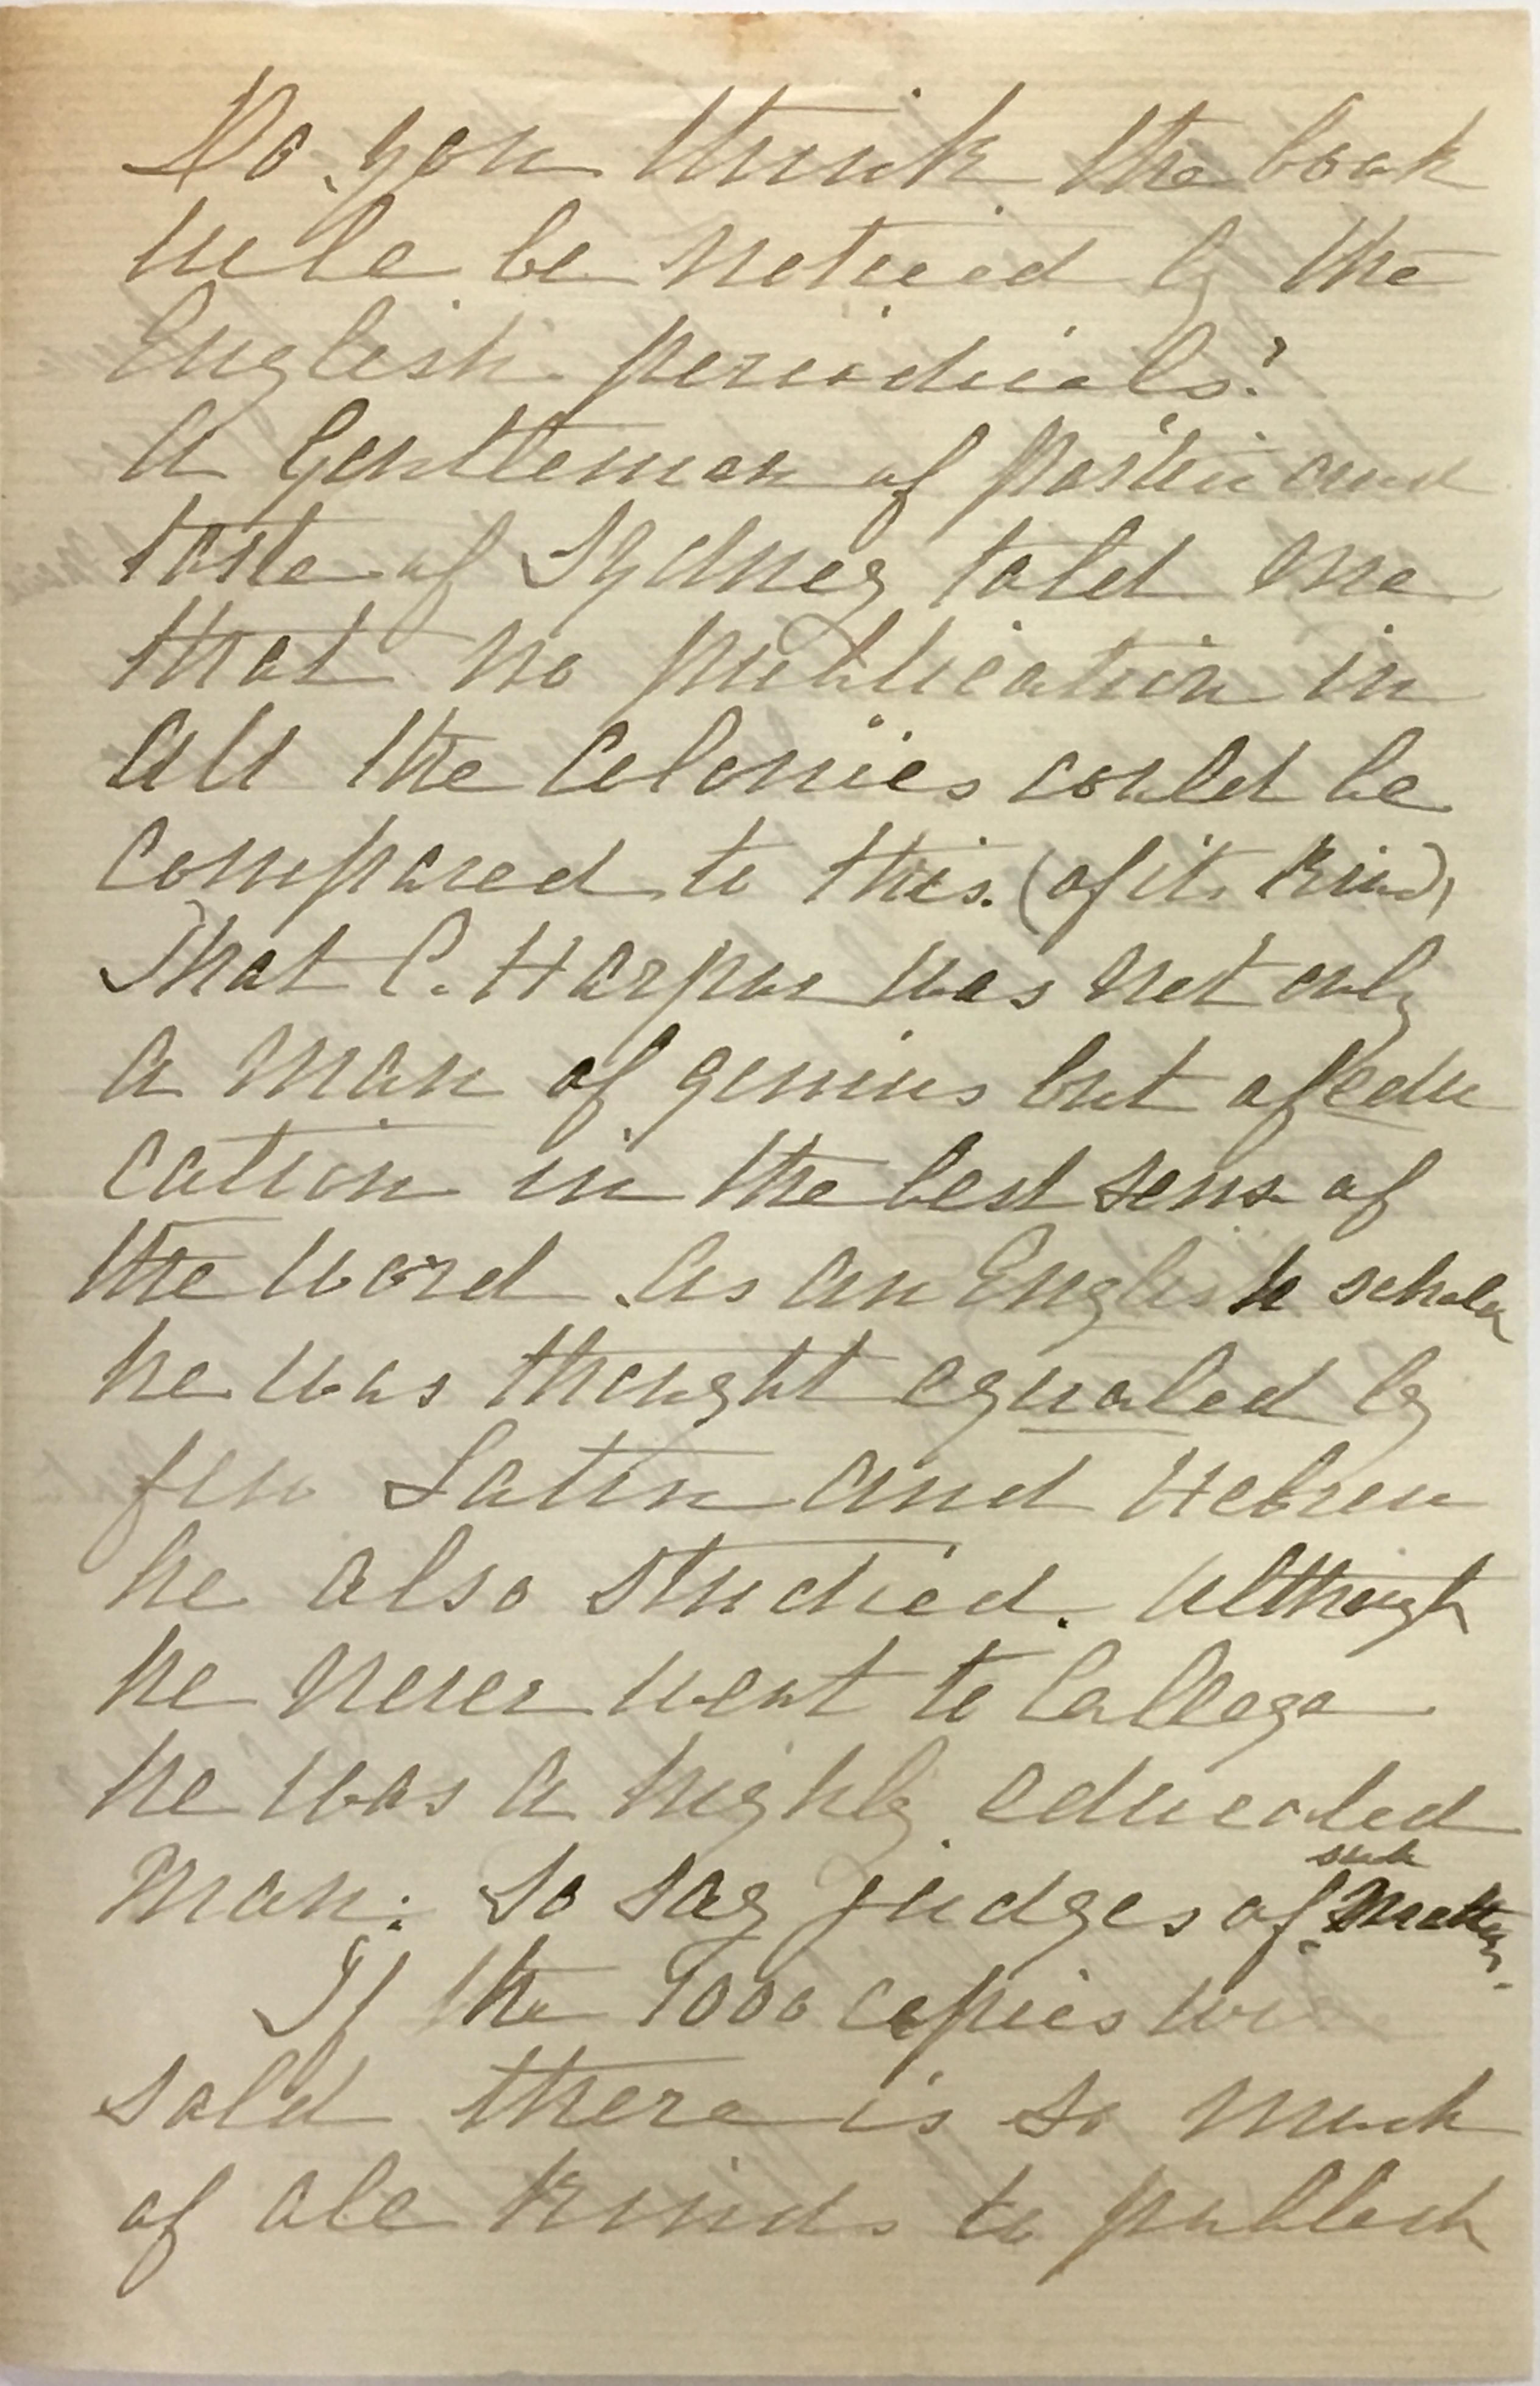 Do you think the book
will be noticed by the
English periodicals?
A Gentleman of position and
taste of Sydney told me
that no publication in
all the Colonies could be
compared to this. (of its kind)
That C. Harpur was not only
a man of genius but of edu
cation in the best sense of
the word. As an English scholar
he was thought equaled by
few Latin and Hebrew
he also studied. Although
he never went to College
he was a highly educated
man: So say judges of such matters.
If the 1000 copies
sold there is so much
of all kinds to publish